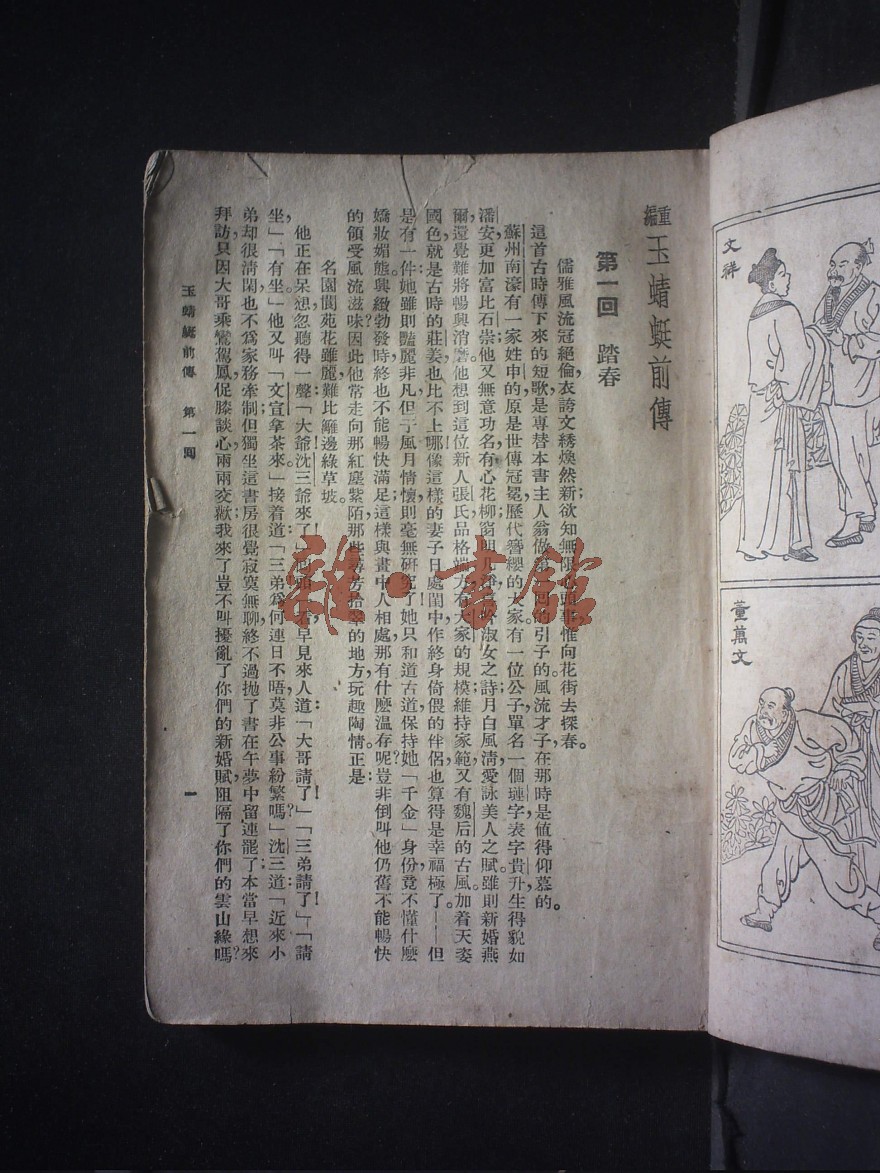 文祥
董萬文
重編 玉蜻蜓前傳
第一回 踏春
儒雅風流冠絕倫，衣誇文綉煥然新；欲知無限心頭事，惟向花街去探春。
這首古時傳下來的短歌，是專替本書主人翁做第一回的引子的，風流才子，在那時是値得仰慕的。
蘇州南濠有一家姓申的，原是世傳冠冕，歷代簪纓的大家。有一位公子，單名一個璉字，表字貴升，生得貌如
潘安，更加富比石崇；他又無意功名，有心花柳，窗明几淨，淑女之詩，月白風淸，愛詠美人之賦。雖則新婚燕
爾，還覺難將暢興消磨。他想到這位新人張氏，品格端方，有大家的規模，維持家範，又有魏后的古風，加着天姿
國色，就是古時的莊姜也比不上哪！像這樣的妻子，日處閨中，作終身倚偎的伴侶，也算得是幸福極了。——但
是有一件：她雖則豔麗非凡，但于風月情懷，則毫無研究，她只和道古道，保持她「千金」身份，竟不懂什麽
嬌妝媚態。興緻勃發時，終也不能暢快滿足；這樣與畫中人相處，那有什麽溫存呢？豈非倒叫他仍舊不能暢快
的領受風流滋味？因此他常走向那紅塵紫陌，那些尋芳拾翠的地方，玩趣陶情。正是：
名園閬苑花雖麗，難比籬邊綠草坡。
他正在呆想，忽聽得一聲：「大爺，沈三爺來了！」回頭一看，早見來人道：「大哥請了！」「三弟請了！」「請
坐，」「有坐。」他又叫「文宣拿茶來。」接着道：「三弟爲何連日不晤，莫非公事紛繁嗎？」沈三道：「近來小
弟却很淸閑，也不爲家務牽制，但獨坐這書房，很覺寂寞無聊，終不過拋了書在午夢中留連罷了；本當早想來
拜訪，只因大哥乘鸞駕鳳，促膝談心，兩兩交歡，我來了豈不叫擾亂了你們的新婚賦，阻隔了你們的雲山緣嗎？
玉蜻蜓前傳 第一回
一
雜·書館